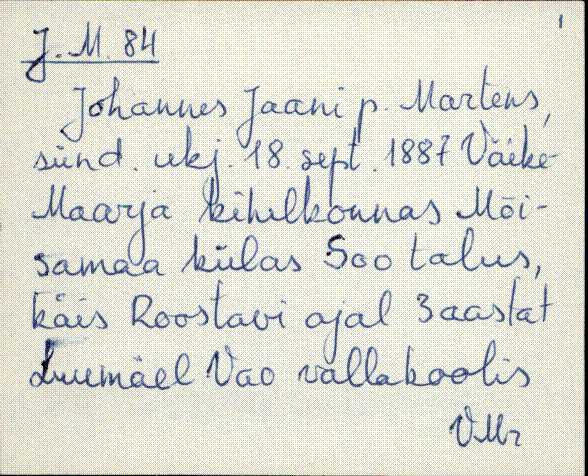 1
J. M. 84
Johannes Jaani p. Martens,
sünd. ukj. 18. sept. 1887 Väike-
Maarja kihelkonnas Mõi-
samaa külas Soo talus,
käis Roostavi ajal 3 aastat
Luumäel Vao vallakoolis
VMr